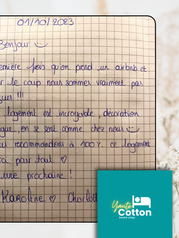 01/10/2023
Bonjour
première fois qu'on prend un airbnb et
le coup nous sommes vraiment pas
!!!
logement est incroyable, décoration
on se sent comme chez nous
recommandons à 100%. ce logement
pour tout ♡
une prochaine!
Karoline ♡ Charlott
Youth
Cotton